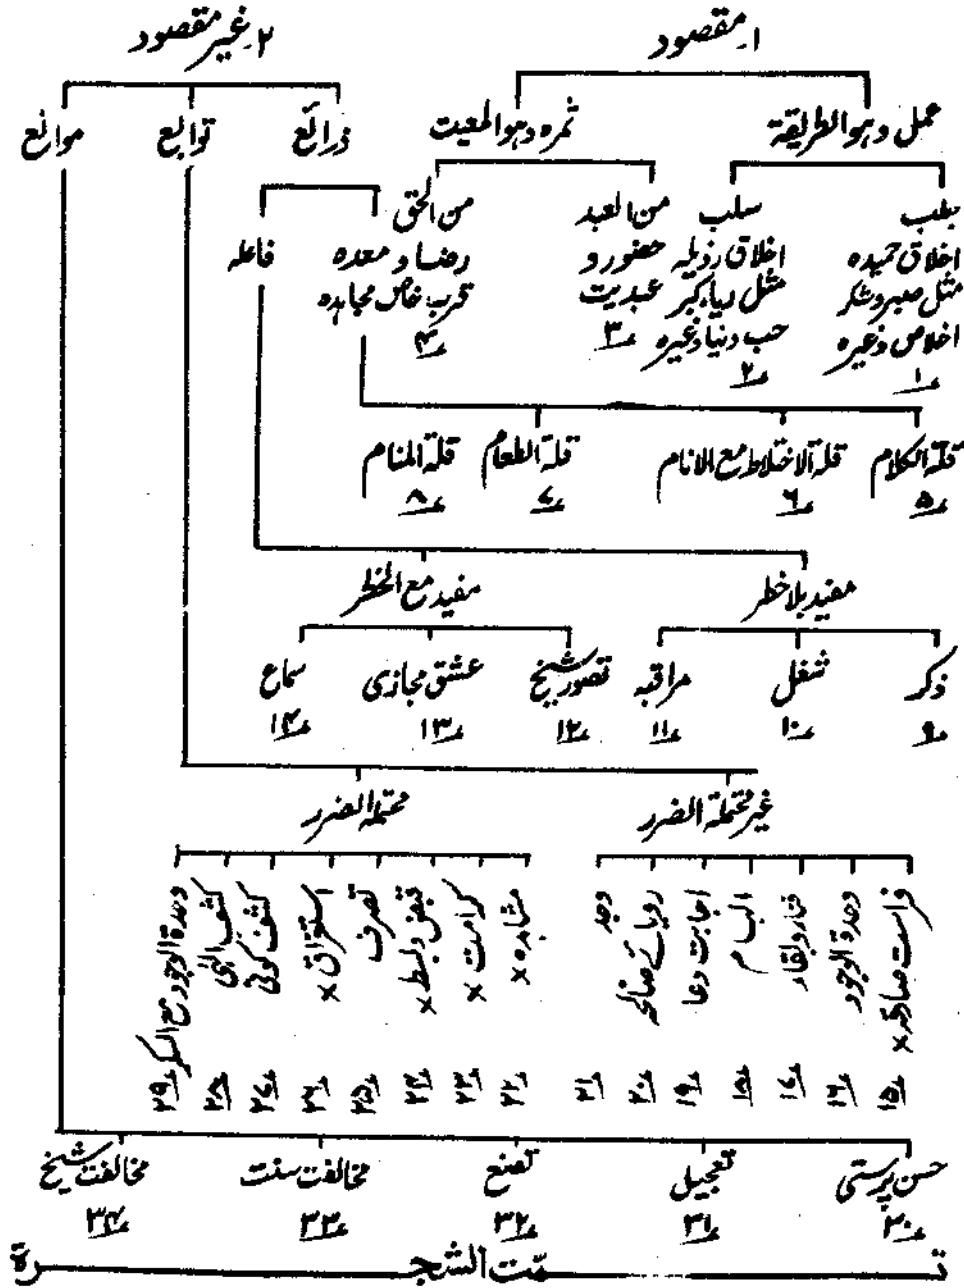 ۱۔ مقصود
۲۔ غیر مقصود
عمل وہوالطریقۃ
ثمرہ وہوالمعیت
ذرائع
توابع
موانع
بطلب
اخلاق حمیدہ
مثل صبروشکر
اخلاص وغیرہ
۱؎
سلب
اخلاق رذیلہ
مثل ریا،کبر
حب دنیاوغیرہ
۲؎
من العبد
حضورو
عبدیت
۳؎
من الحق
رضا و
قرب خاص
۴؎
معدہ
مجاہدہ
فاعلہ
قلۃ الکلام
۵؎
قلۃ الاختلاط مع الانام
۶؎
قلۃ الطعام
۷؎
قلۃ المنام
۸؎
مفید بلاخطر
مفید مع الخطر
ذکر
۹؎
شغل
۱۰؎
مراقبہ
۱۱؎
تصورشیخ
۱۲؎
عشق مجازی
۱۳؎
سماع
۱۴؎
غیرمحتملۃ الضرر
محتملۃ الضرر
فراست صادقہ ×
۱۵؎
وحدۃ الوجود
۱۶؎
فناروبقار
۱۷؎
الہام
۱۸؎
اجابت دعا
۱۹؎
رویائے صالحہ
۲۰؎
وجد
۲۱؎
مشاہدہ ×
۲۲؎
کرامت ×
۲۳؎
قبض وبسط ×
۲۴؎
تصرف
۲۵؎
استغراق ×
۲۶؎
کشف کونی
۲۷؎
کشف الٰہی
۲۸؎
وحدۃ الوجود مع السکر
۲۹؎
حسن پرستی
۳۰؎
تعجیل
۳۱؎
تصنع
۳۲؎
مخالفت سنت
۳۳؎
مخالفت شیخ
۳۴؎
تمّت الشجرۃ